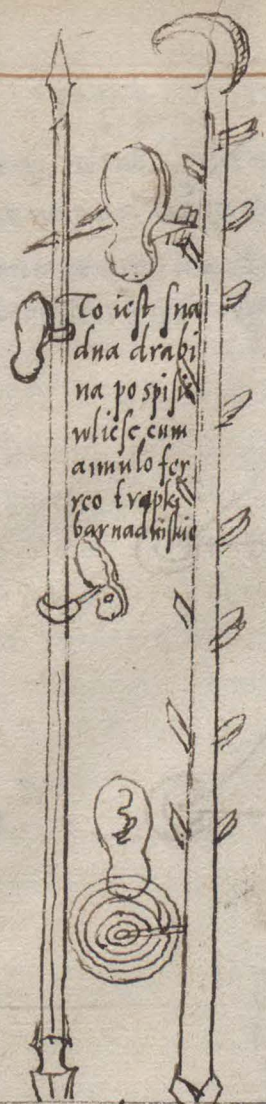 To iest sna
dna drabi
na po spisie
wliese cum
annulo fer
reo trepki
barnadinskie